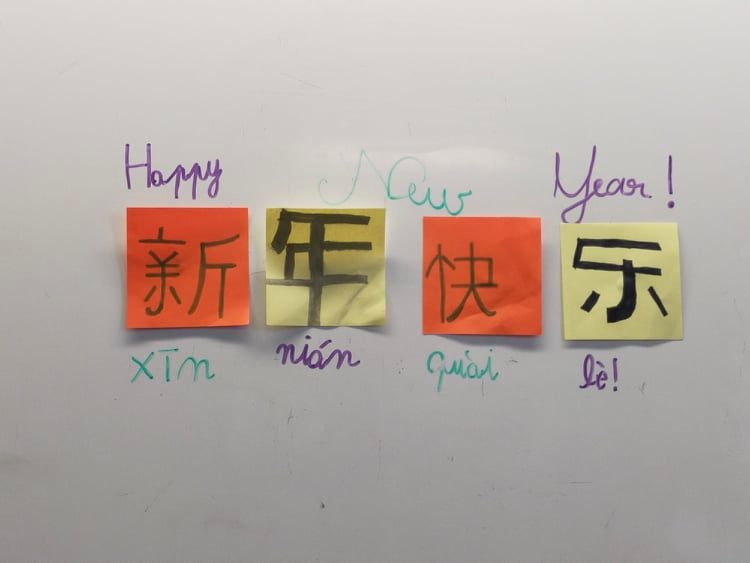 Happy New Year!
新年快乐
xīn nián quài lè!